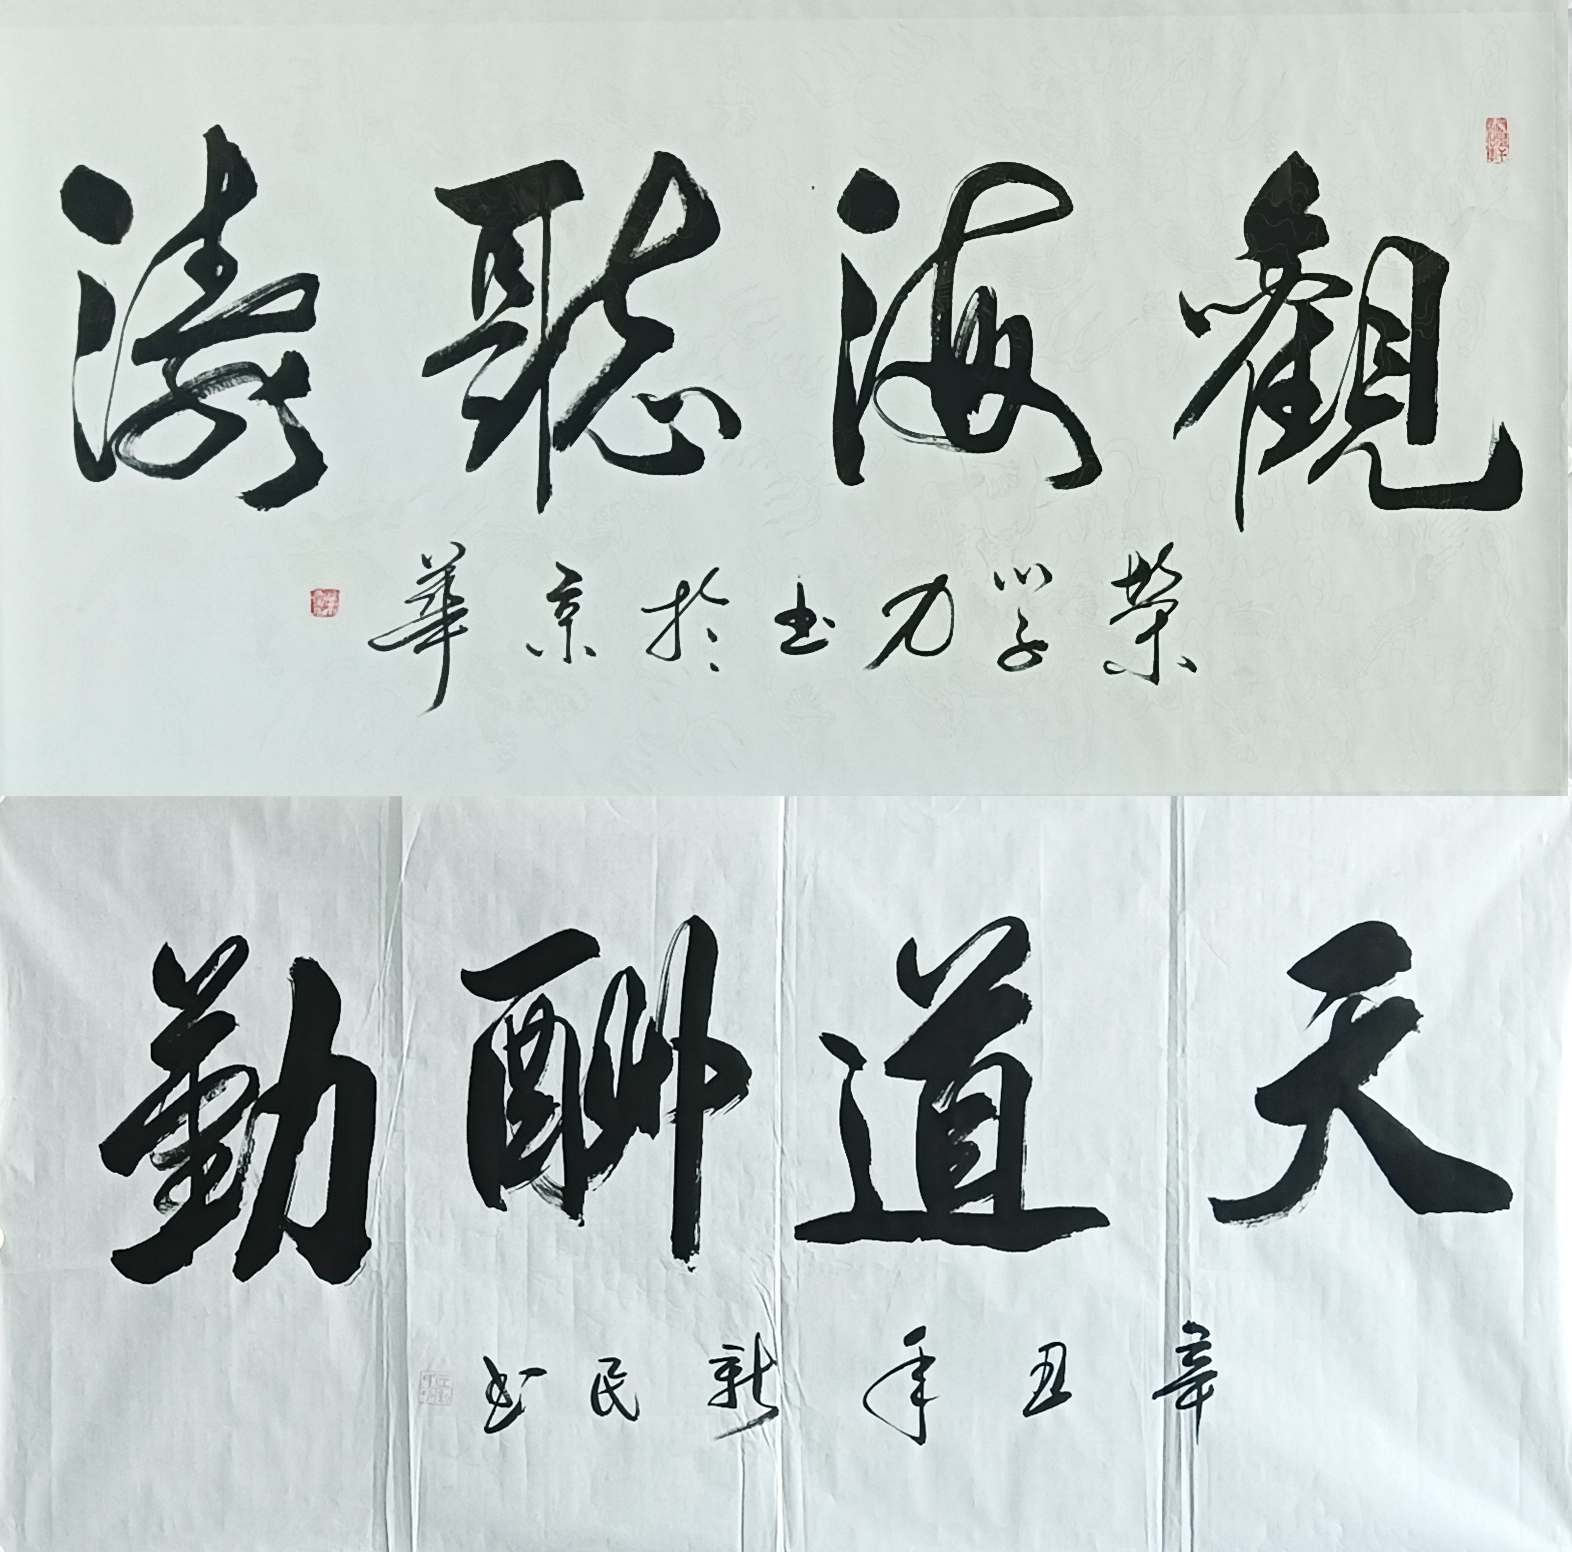 觀海聽濤
榮學力書於京華
天道酬勤
辛丑年新民書